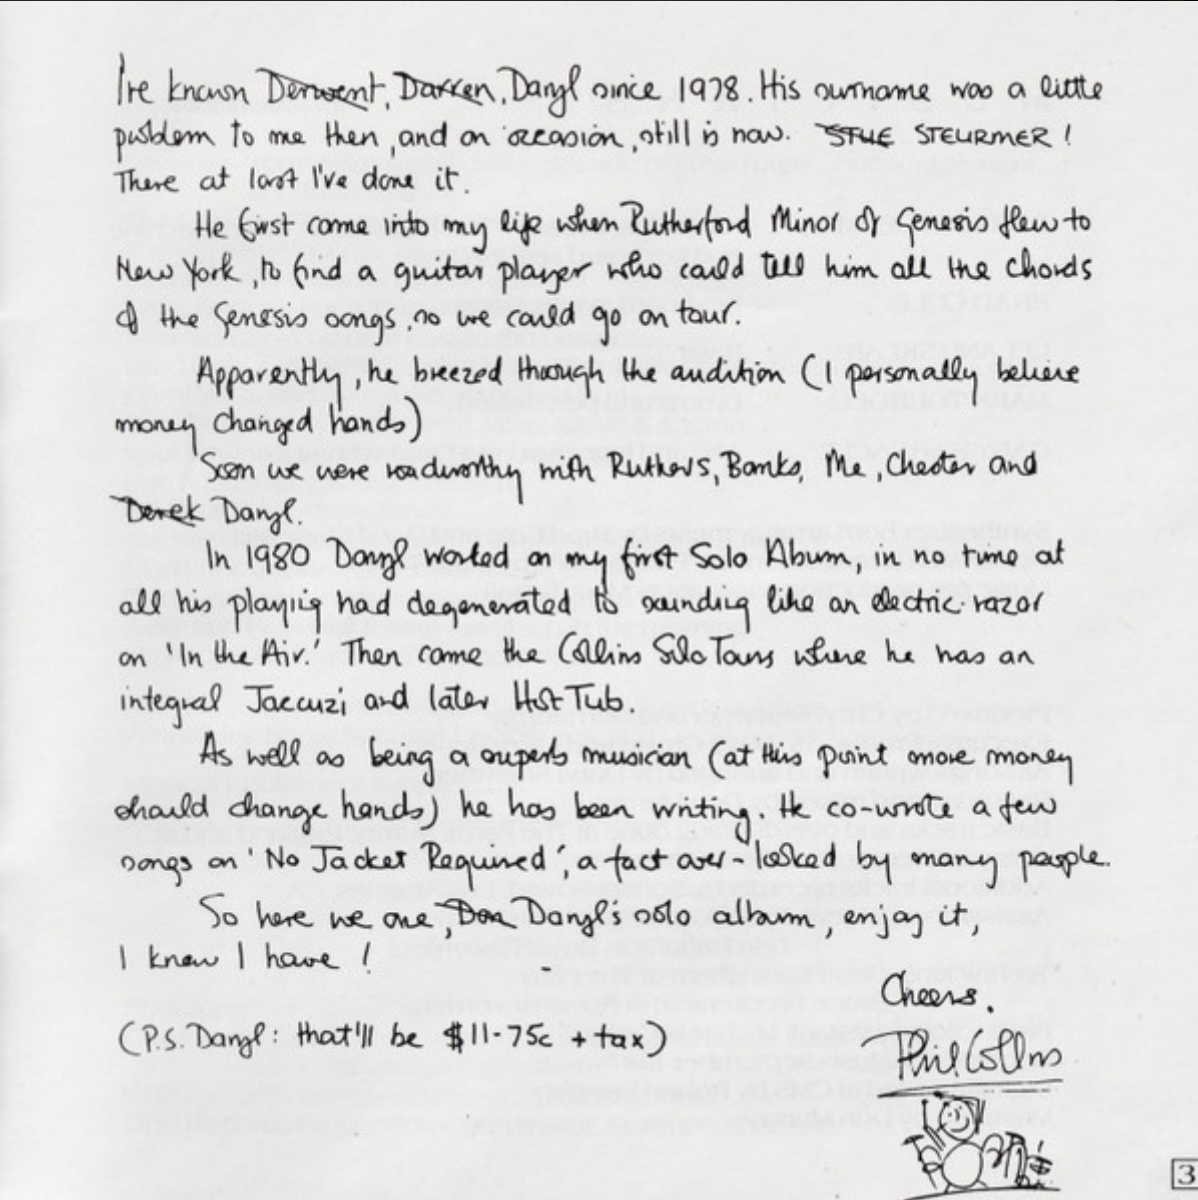 I've known Derwent, Darren, Daryl since 1978. His surname was a little
problem to me then, and on occasion, still is now. STUE STEURMER!
There at last I've done it.
He first came into my life when Rutherford Minor of Genesis flew to
New York, to find a guitar player who could tell him all the chords
of the Genesis songs, so we could go on tour.
Apparently, he breezed through the audition (I personally believe
money changed hands)
Soon we were roadworthy with Ruthers, Banks, Me, Chester and
Derek Daryl.
In 1980 Daryl worked on my first Solo Album, in no time at
all his playing had degenerated to sounding like an electric razor
on 'In the Air.' Then came the Collins Solo Tours where he was an
integral Jaccuzi and later Hot Tub.
As well as being a superb musician (at this point more money
should change hands) he has been writing. He co-wrote a few
songs on 'No Jacket Required', a fact over-looked by many people.
So here we are, Don Daryl's solo album, enjoy it,
I know I have!
Cheers.
(P.S. Daryl: that'll be $11-75c + tax)
Phil Collins
3